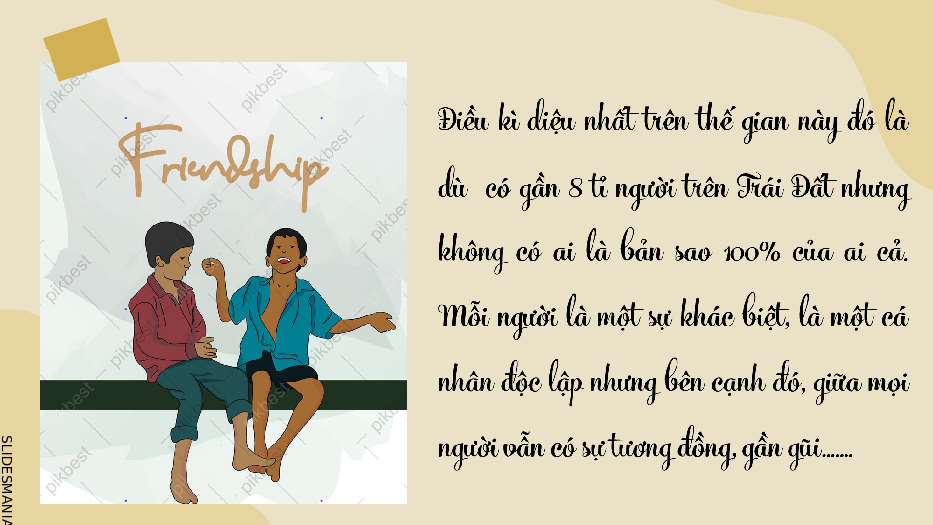 Friendship
Điều kì diệu nhất trên thế gian này đó là
dù có gần 8 tỉ người trên Trái Đất nhưng
không có ai là bản sao 100% của ai cả.
Mỗi người là một sự khác biệt, là một cá
nhân độc lập nhưng bên cạnh đó, giữa mọi
người vẫn có sự tương đồng, gần gũi.......
SLIDESMANIA
pikbest
pikbest
pikbest
pikbest
pikbest
pikbest
pikbest
pikbest
pikbest
pikbest
pikbest
pikbest
pikbest